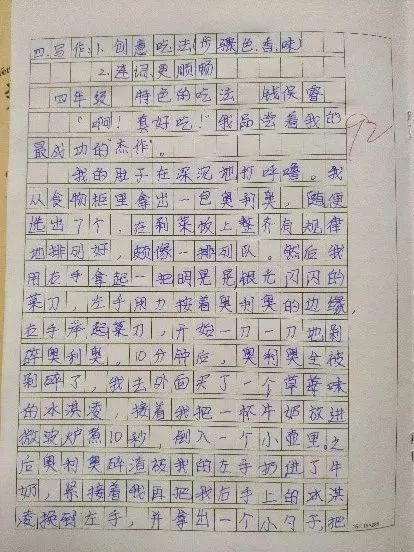 四.写作:1.创意吃法(步骤色.香.味)
2.连词更顺畅
四年级 特色的吃法 钱俣睿
"啊!真好吃!"我品尝着我的
92
最成功的杰作。
我的肚子在深沉地打呼噜。我
从食物柜里拿出一包奥利奥,随便
选出了7个,在剁菜板上整齐有规律
地排列好,颇像一排列队。然后我
用右手拿起一把明晃晃银光闪闪的
菜刀,左手用力按着奥利奥的边缘,
右手举起菜刀,开始一刀一刀地剁
碎奥利奥。10分钟后,奥利奥全被
剁碎了,我去外面买了一个草莓味
的冰淇凌,接着我把一杯牛奶放进
微波炉蒸10秒,倒入一个小壶里。之
后奥利奥碎渣被我的左手扔进了牛
奶,紧接着我再把我右手上的冰淇
凌换到左手,并拿出一个小勺子,把